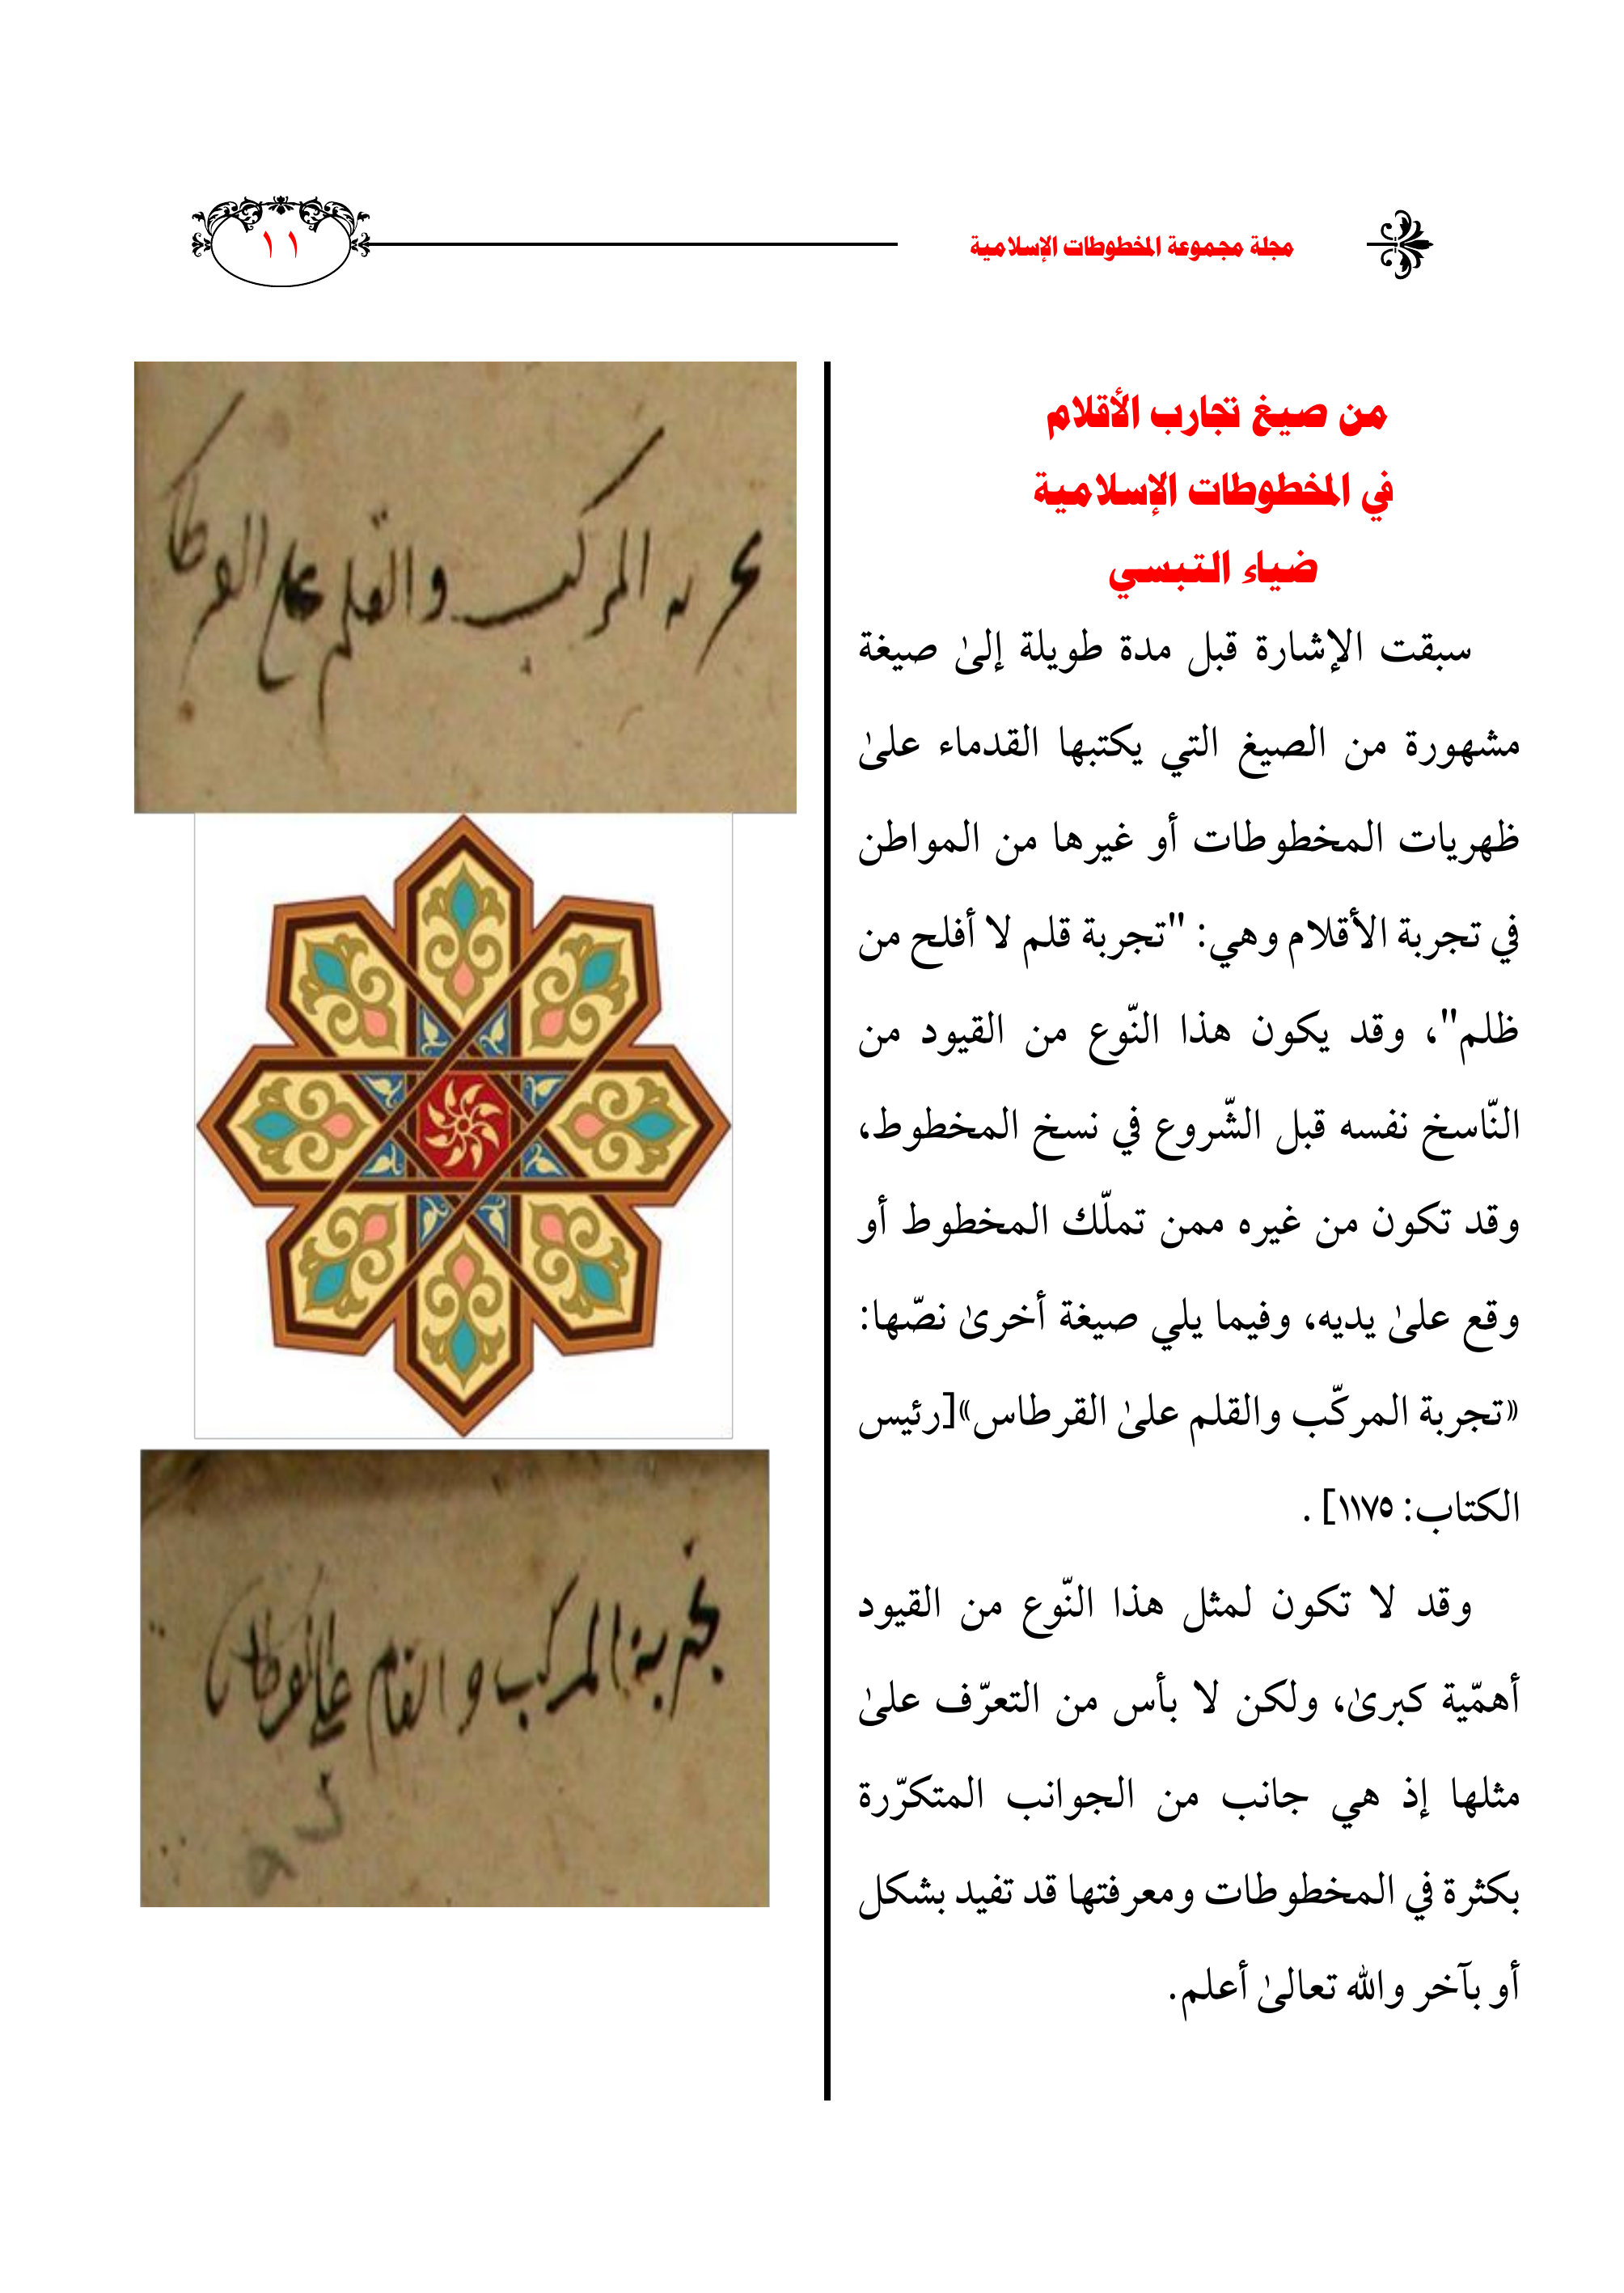 مجلة مجموعة المخطوطات الإسلامية
١١
من صيغ تجارب الأقلام
في المخطوطات الإسلامية
ضياء التبسي
سبقت الإشارة قبل مدة طويلة إلىٰ صيغة
مشهورة من الصيغ التي يكتبها القدماء علىٰ
ظهريات المخطوطات أو غيرها من المواطن
في تجربة الأقلام وهي: "تجربة قلم لا أفلح من
ظلم"، وقد يكون هذا النّوع من القيود من
النّاسخ نفسه قبل الشّروع في نسخ المخطوط،
وقد تكون من غيره ممن تملّك المخطوط أو
وقع علىٰ يديه، وفيما يلي صيغة أخرىٰ نصّها:
«تجربة المركّب والقلم علىٰ القرطاس»[رئيس
الكتاب: ١١٧٥] .
وقد لا تكون لمثل هذا النّوع من القيود
أهمّية كبرىٰ، ولكن لا بأس من التعرّف علىٰ
مثلها إذ هي جانب من الجوانب المتكرّرة
بكثرة في المخطوطات ومعرفتها قد تفيد بشكل
أو بآخر والله تعالىٰ أعلم.
تجربه المركب والقلم على القرطاس
تجربة المركب والقلم على القرطاس